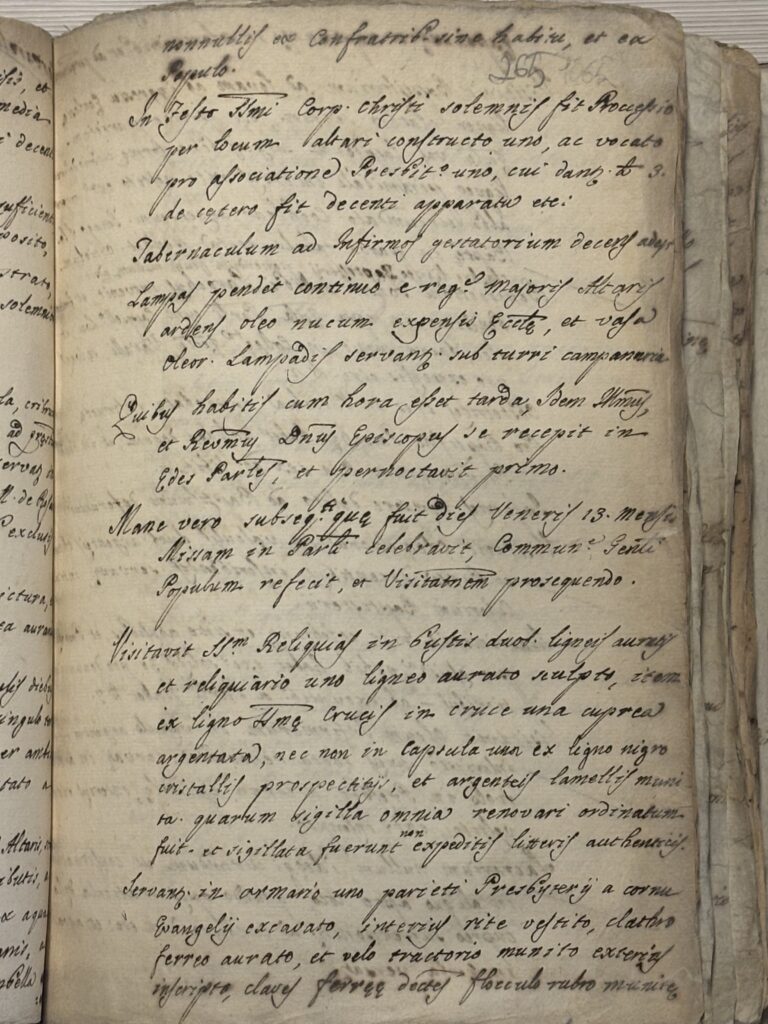 nonnullis ex Confratrib. sine habitu, et ex
Populo.
265
In Festo SSmi Corp. Christi solemnis fit Processio
per locum altari constructo uno, ac vocato
pro associatione Presbit.o uno, cui dant. 3.
de cętero fit decenti apparatu etc:
Tabernaculum ad Infirmos gestatorium decens
Lampas pendet continuo e reg.e Majoris Altaris
ardens oleo nucum expensis Eccłę, et vasa
oleor. Lampadis servant. sub turri campanaria
Quibus habitis cum hora esset tarda, Idem Illmus,
et Revmus Dnus Episcopus se recepit in
Ędes Parłes, et pernoctavit primo.
Mane vero subseq.ti quę fuit dies Veneris 13. mensis
Missam in Parłi celebravit, Commun.e Genłi
Populum refecit, et Visitatnem prosequendo.
Visitavit SS.m Reliquias in Bustis duob. ligneis auratis
et reliquiario uno ligneo aurato sculpto, item
ex ligno SSmę Crucis in cruce una cuprea
argentata, nec non in capsula una ex ligno nigro
cristallis prospectitijs, et argenteis lamellis muni
ta. quarum sigilla omnia renovari ordinatum
fuit. et sigillata fuerunt non expeditis litteris authenticis.
Servant. in ormario uno parieti Presbyterij a cornu
Evangelij excavato, interius rite vestito, clathro
ferreo aurato, et velo tractorio munito exterius
inscripto, claves ferreę flocculo rubro munitę